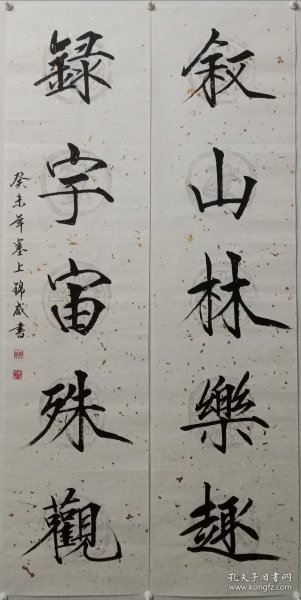 叙山林樂趣
録宇宙殊觀
癸未年塞上錦成書
孔夫子旧书网
www.kongfz.com